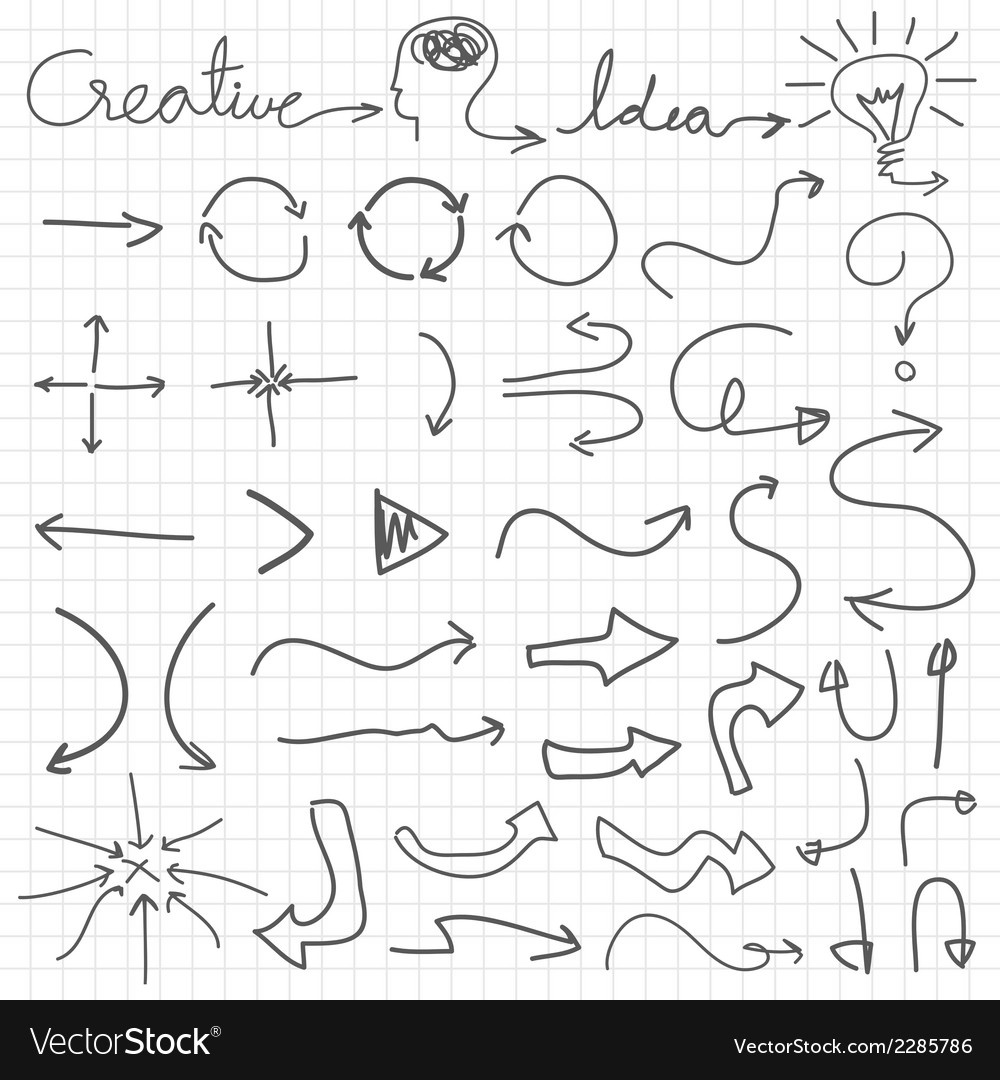 Creative Idea
VectorStock® VectorStock.com/2285786